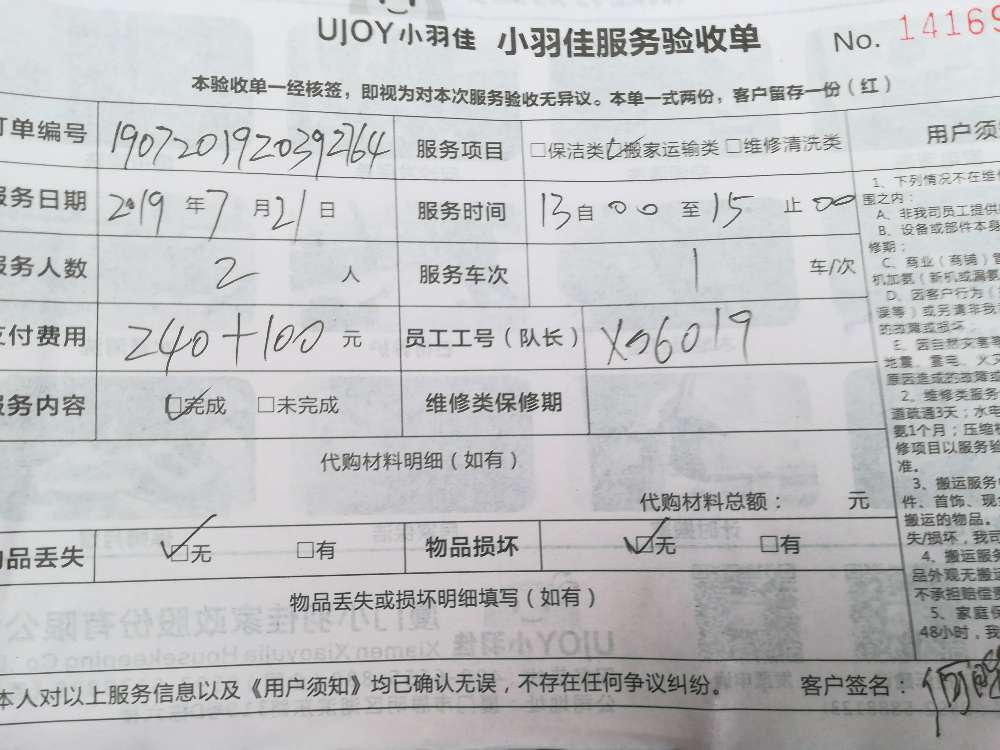 UJOY小羽佳 小羽佳服务验收单 No. 14169
本验收单一经核签，即视为对本次服务验收无异议。本单一式两份，客户留存一份（红）
订单编号 1907201920392764 服务项目 □保洁类 ☑搬家运输类 □维修清洗类
服务日期 2019 年 7 月 21 日 服务时间 13 自 00 至 15 止 00
服务人数 2 人 服务车次 1 车/次
支付费用 240+100 元 员工工号（队长） X06019
服务内容 ☑完成 □未完成 维修类保修期
代购材料明细（如有）
代购材料总额： 元
物品丢失 ☑无 □有 物品损坏 ☑无 □有
物品丢失或损坏明细填写（如有）
本人对以上服务信息以及《用户须知》均已确认无误，不存在任何争议纠纷。 客户签名：
用户须
1、下列情况不在维
围之内：
A、非我司员工提供
B、设备或部件本身
修期；
C、商业（商铺）
机加氨（新机或漏氨
D、因客户行为（
误等）或另请非我
的故障或损坏；
E、因自然灾害等
地震、雷电、火灾
原因造成的故障或
2、维修类服务
道疏通3天；水电
氨1个月；压缩
修项目以服务验
准。
3、搬运服务
件、首饰、现
搬运的物品。
失/损坏，我司
4、搬运服务
品外观无搬运
不承担赔偿责
5、家庭保
48小时，我